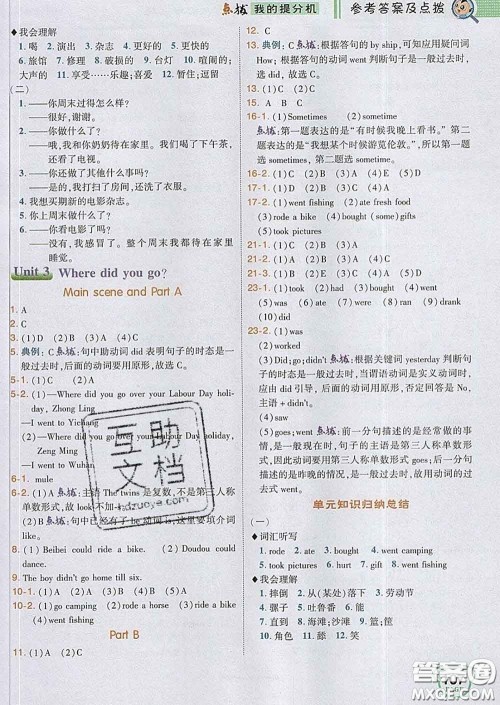 点拨 我的提分机
参考答案及点拨
◆我会理解
1. 喝 2. 演出 3. 杂志 4. 更好的 5. 更快的
6. 旅馆 7. 修理 8. 破损的 9. 台灯 10. 喧闹的;
大声的 11. 享受……乐趣;喜爱 12. 暂住;逗留
(二)
1. ——你周末过得怎么样?
——很好,谢谢。
2. ——你做什么了?
——我和你奶奶待在家里。我们喝了下午茶,
还看了电视。
3. ——你还做了其他什么事吗?
——是的,我打扫了房间,还洗了衣服。
4. 我想买期新的电影杂志。
5. ——你周末做什么了?
6. ——你看电影了吗?
——没有,我感冒了。整个周末我都待在家里
睡觉。
Unit 3 Where did you go?
Main scene and Part A
1. A
2. C
3. (1)D (2)B (3)A (4)C
5. 典例:C 点拨:句中助动词 did 表明句子的时态是一
般过去时,后面的动词要用原形,故选 C。
5-1. (1)C (2)A
5-2. (1)—Where did you go over your Labour Day holi-
day, Zhong Ling
—I went to Yichang
(2)—Where did you go over your Labour Day holiday,
Zeng Ming
—I went to Wuhan
6-1. mule
7. (1)B 点拨:主语 The twins 是复数,不是第三人称
单数形式,故用 look。
(2)C 点拨:句中已经有了 be 动词 is,这里要填介词
like。
8. (1)Beibei could ride a bike. (2)Doudou could
dance.
9. The boy didn't go home till six.
10-1. (1)B (2)C (3)D (4)A
10-2. (1)go camping (2)rode a horse (3)ride a bike
(4)went camping
Part B
11. (1)A (2)C
12. C
13. 典例:C 点拨:根据答句的 by ship,可知应疑问词
How;根据动词 went 判断句子是一般过去时,选
did,故选 C。
13. (1)C (2)B (3)D (4)A
15. A B C
16-1. (1)Sometimes (2)sometimes
点拨:第一题表达的是“有时候我晚上看书。”第二
题表达的是“我想某个时候游览伦敦。”,所以第一题
选 sometimes,第二题选 sometime。
16-2. (1)C (2)A (3)B (4)E (5)D
17-1. (1)went fishing (2)ate fresh food
(3)rode a bike (4)bought (some) gifts
(5)took pictures
21-1. (1)C (2)D (3)B (4)A
21-2. (1)B (2)A (3)D (4)E (5)C
23-1. (1)took (2)had (3)bought (4)went
(5)was (6)ate (7)were (8)rode (9)
drank (10)did
23-2. (1)was
(2)worked
(3)Did;go;didn't 点拨:根据关键词 yesterday 判断句
子的时态是一般过去时,句意动词通常是实义动词,
应由 did 引导,后面的动词用原形,否定回答是 No,
主语+didn't。
(4)saw
(5)goes;went 点拨:前一分句描述的是经常做的
事,时态是一般现在时,句子的主语是第三人称单数形
式,因此动词要用第三人称单数形式 goes;后一分句
描述的情况是在过去发生的,故用动词 go 的过去式
式 went。
单元知识归纳总结
(一)
◆词汇听写
1. rode 2. ate 3. bought 4. went camping
5. took pictures 6. hurt 7. gift 8. went fishing
◆我会理解
1. 摔倒 2. 从(某处)落下 3. 劳动节
4. 骡子 5. 吐鲁番 6. 能
7. 直到 8. 海滩;沙滩 9. 篮;筐
10. 角色 11. 舔 12. 笑
互助
文档
hdzuoye.com
答案圈
MXQE.COM